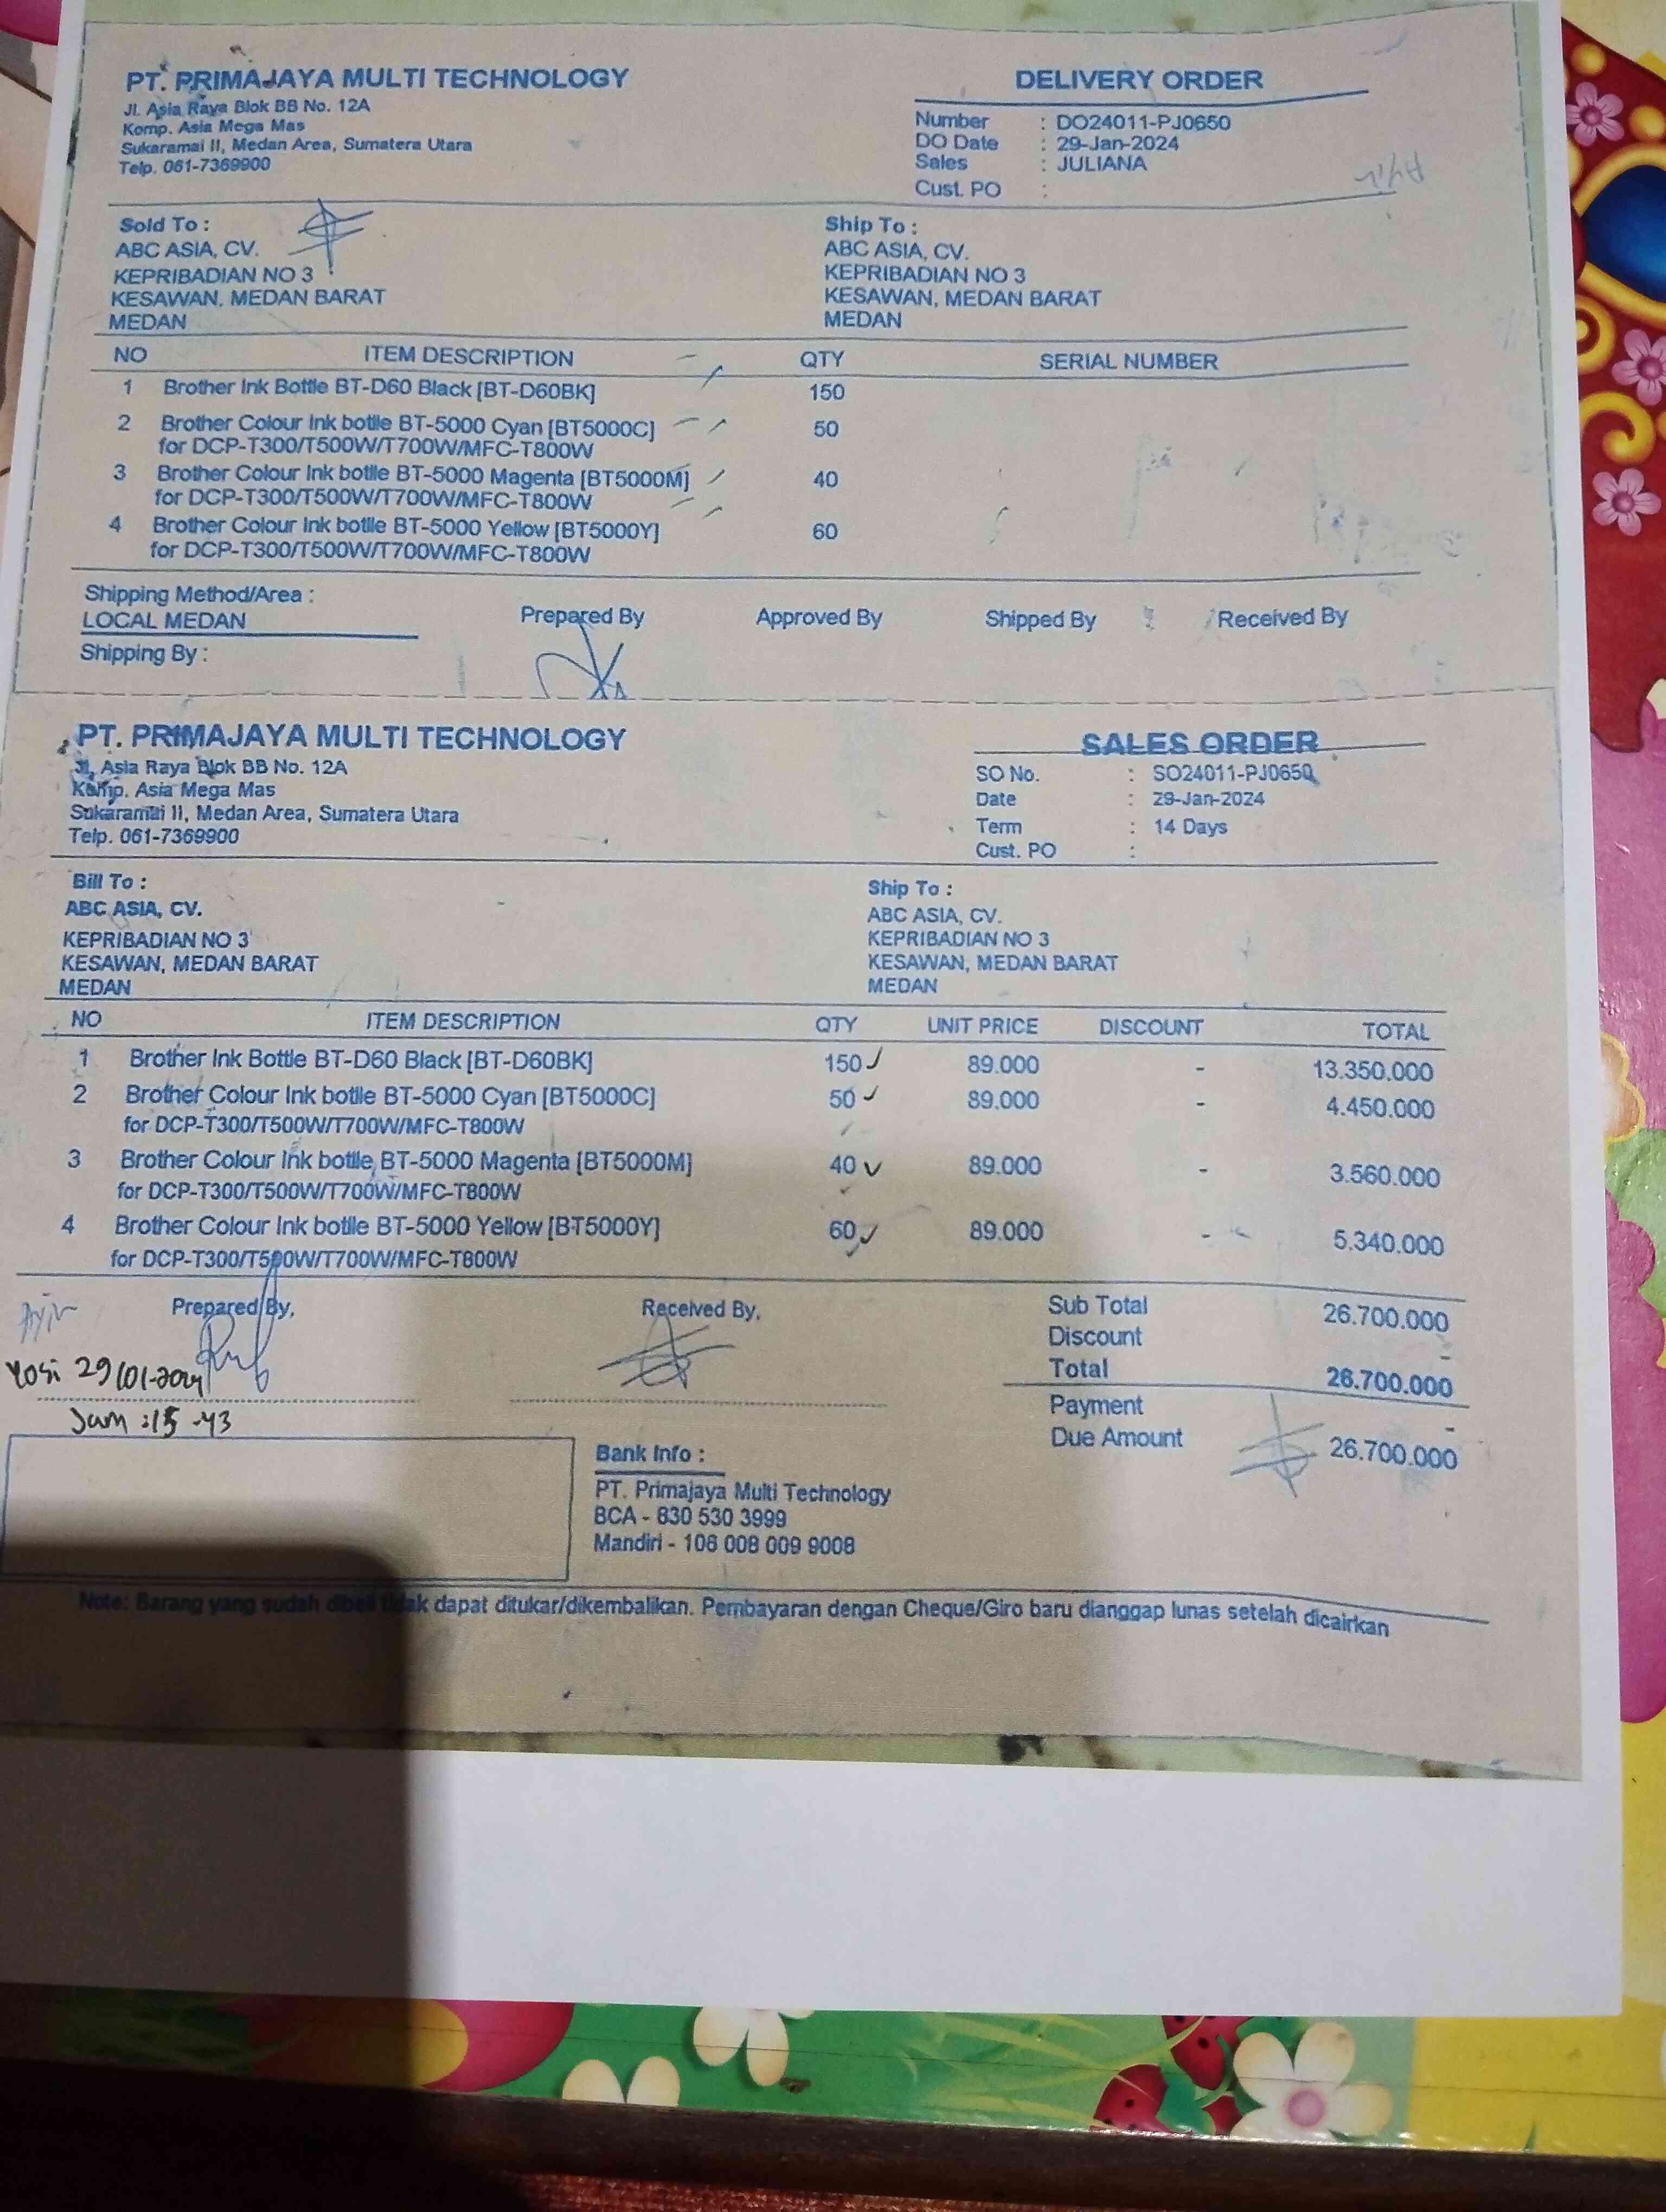 PT. PRIMAJAYA MULTI TECHNOLOGY
Jl. Asia Raya Blok BB No. 12A
Komp. Asia Mega Mas
Sukaramai II, Medan Area, Sumatera Utara
Telp. 061-7369900
DELIVERY ORDER
Number : DO24011-PJ0650
DO Date : 29-Jan-2024
Sales : JULIANA
Cust. PO :
Sold To :
ABC ASIA, CV.
KEPRIBADIAN NO 3
KESAWAN, MEDAN BARAT
MEDAN
Ship To :
ABC ASIA, CV.
KEPRIBADIAN NO 3
KESAWAN, MEDAN BARAT
MEDAN
NO ITEM DESCRIPTION QTY SERIAL NUMBER
1 Brother Ink Bottle BT-D60 Black [BT-D60BK] 150
2 Brother Colour Ink botlle BT-5000 Cyan [BT5000C] 50
for DCP-T300/T500W/T700W/MFC-T800W
3 Brother Colour Ink botlle BT-5000 Magenta [BT5000M] 40
for DCP-T300/T500W/T700W/MFC-T800W
4 Brother Colour Ink botlle BT-5000 Yellow [BT5000Y] 60
for DCP-T300/T500W/T700W/MFC-T800W
Shipping Method/Area :
LOCAL MEDAN
Shipping By :
Prepared By Approved By Shipped By Received By
PT. PRIMAJAYA MULTI TECHNOLOGY
Jl. Asia Raya Blok BB No. 12A
Komp. Asia Mega Mas
Sukaramai II, Medan Area, Sumatera Utara
Telp. 061-7369900
SALES ORDER
SO No. : SO24011-PJ0650
Date : 29-Jan-2024
Term : 14 Days
Cust. PO :
Bill To :
ABC ASIA, CV.
KEPRIBADIAN NO 3
KESAWAN, MEDAN BARAT
MEDAN
Ship To :
ABC ASIA, CV.
KEPRIBADIAN NO 3
KESAWAN, MEDAN BARAT
MEDAN
NO ITEM DESCRIPTION QTY UNIT PRICE DISCOUNT TOTAL
1 Brother Ink Bottle BT-D60 Black [BT-D60BK] 150 89.000 - 13.350.000
2 Brother Colour Ink botlle BT-5000 Cyan [BT5000C] 50 89.000 - 4.450.000
for DCP-T300/T500W/T700W/MFC-T800W
3 Brother Colour Ink botlle BT-5000 Magenta [BT5000M] 40 89.000 - 3.560.000
for DCP-T300/T500W/T700W/MFC-T800W
4 Brother Colour Ink botlle BT-5000 Yellow [BT5000Y] 60 89.000 - 5.340.000
for DCP-T300/T500W/T700W/MFC-T800W
Prepared By,
Yosi 29/01-2024
Jam :15-43
Received By,
Sub Total 26.700.000
Discount -
Total 26.700.000
Payment -
Due Amount 26.700.000
Bank Info :
PT. Primajaya Multi Technology
BCA - 830 530 3999
Mandiri - 106 008 009 9008
Note: Barang yang sudah dibeli tidak dapat ditukar/dikembalikan. Pembayaran dengan Cheque/Giro baru dianggap lunas setelah dicairkan